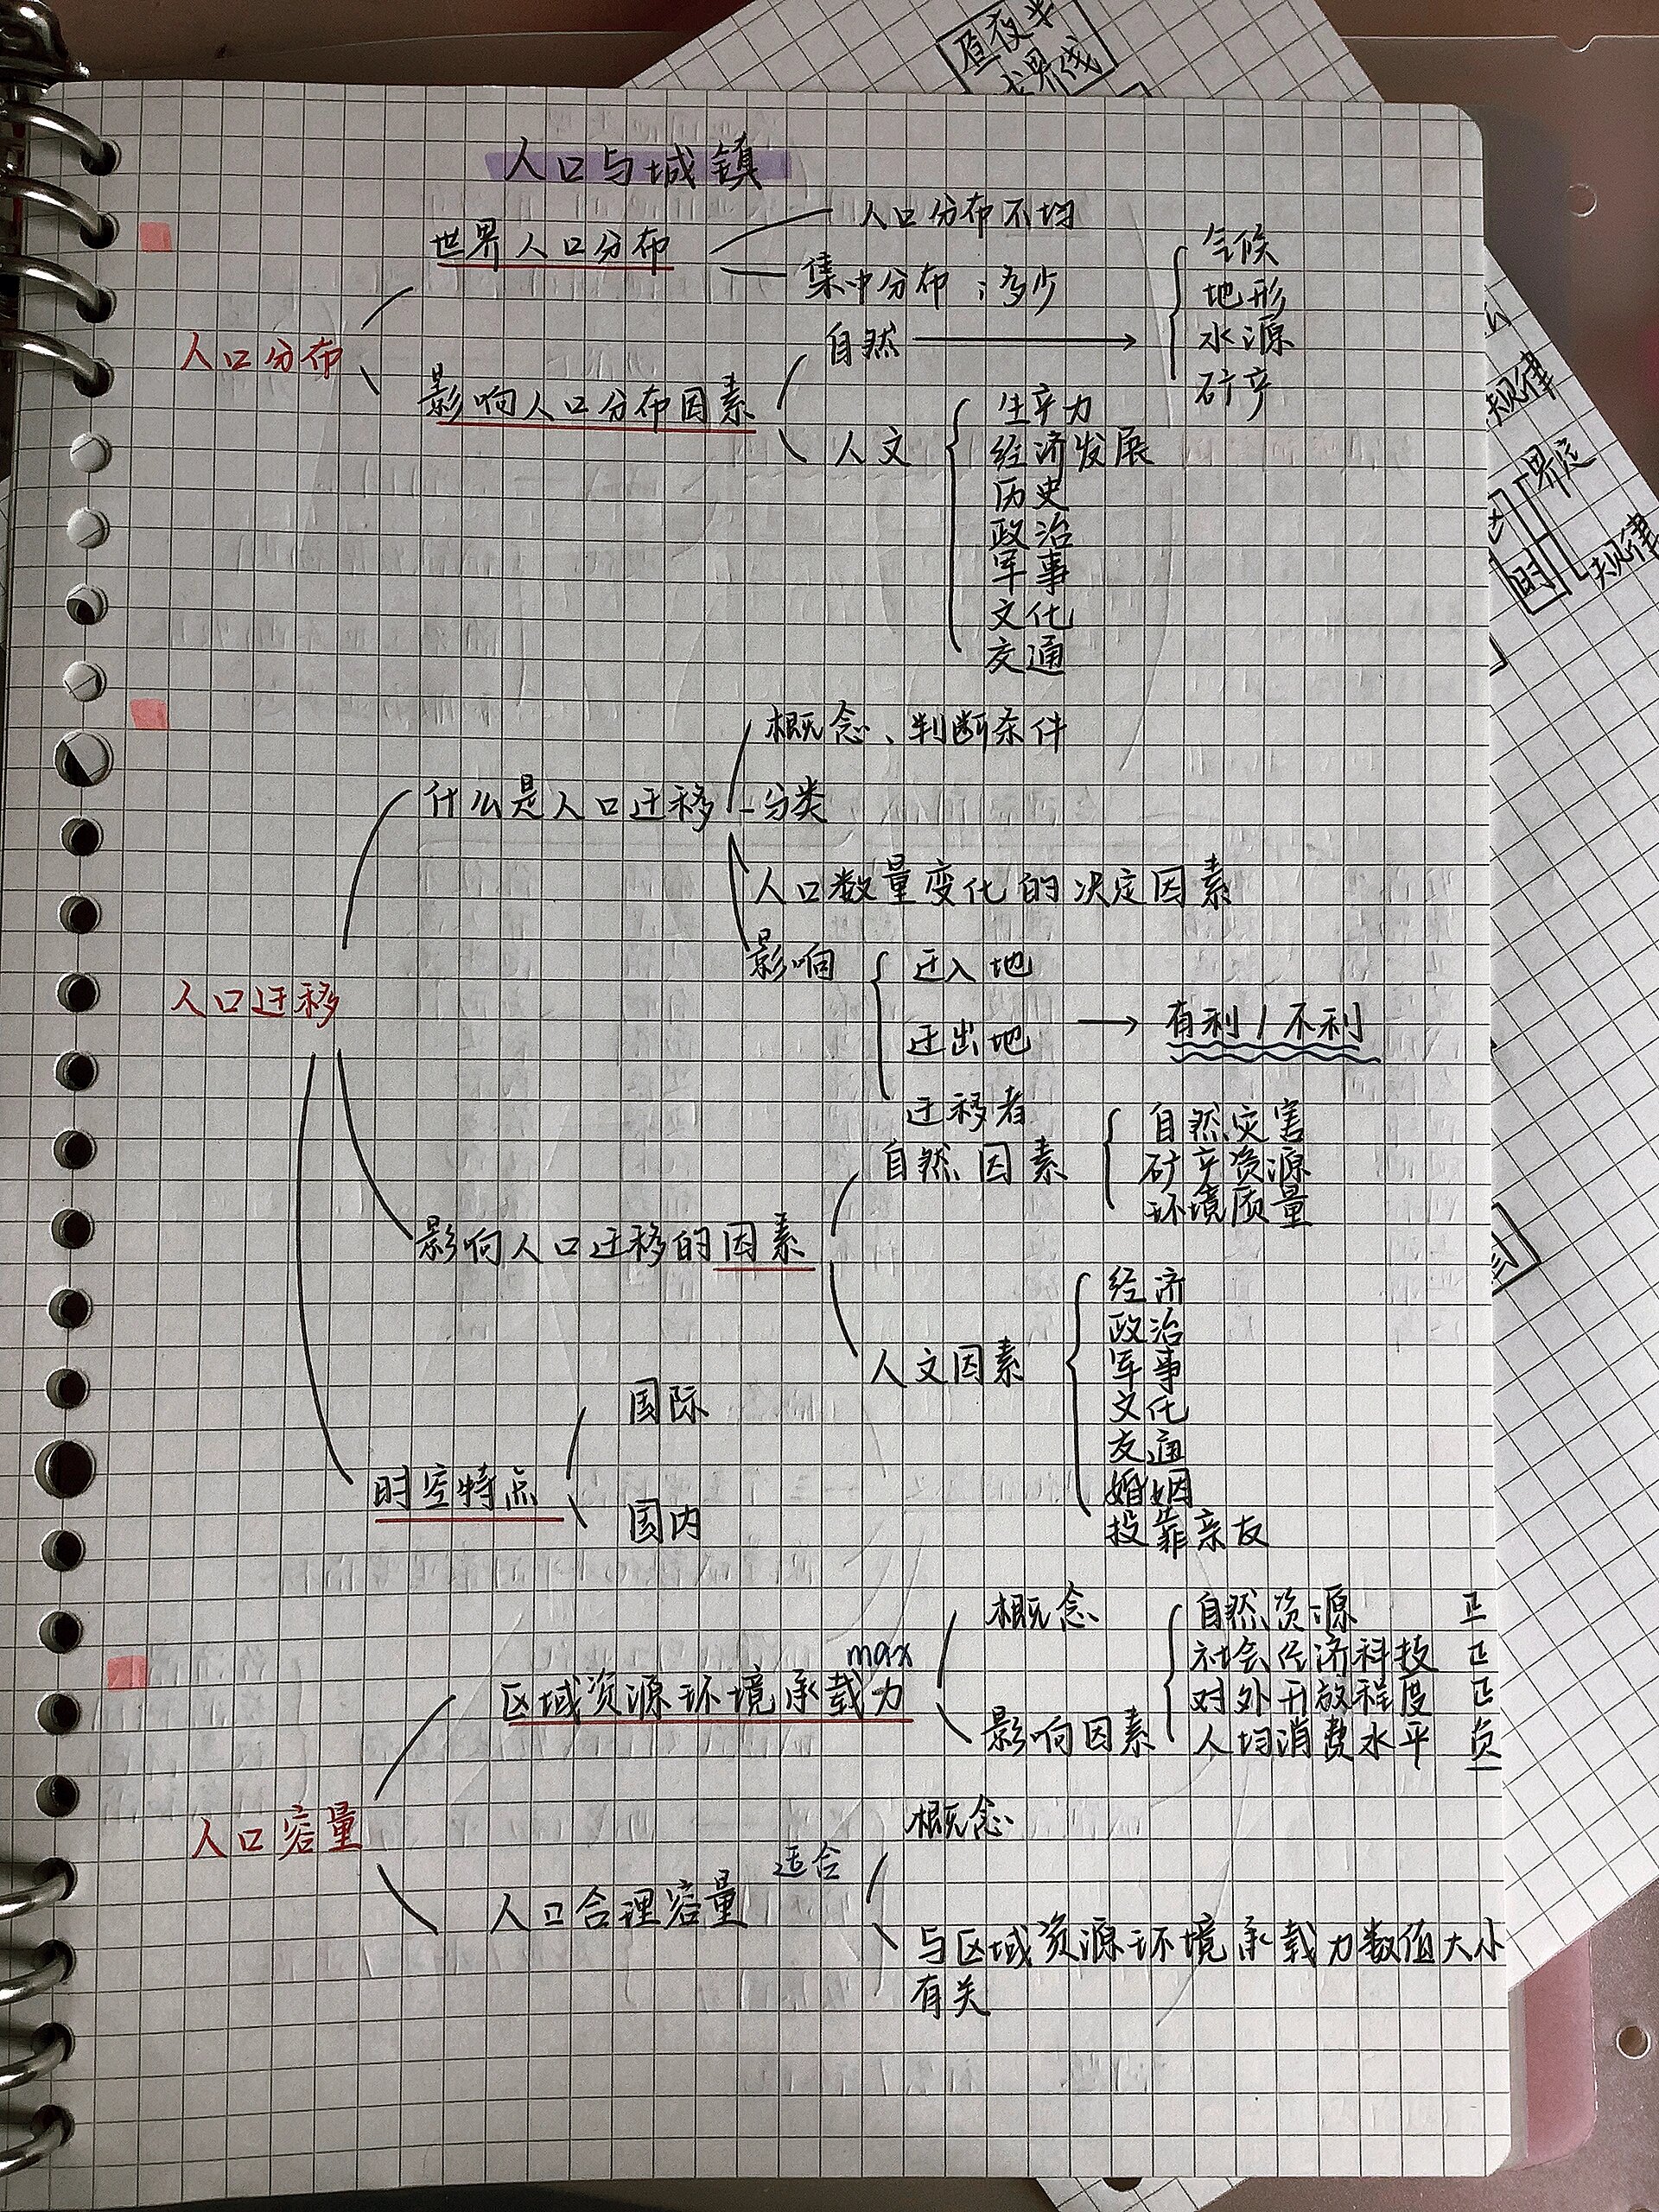 人口与城镇
世界人口分布
人口分布不均
集中分布：多少
人口分布
影响人口分布因素
自然
气候
地形
水源
矿产
人文
生产力
经济发展
历史
政治
军事
文化
交通
什么是人口迁移
概念、判断条件
分类
人口数量变化的决定因素
影响
迁入地
迁出地
迁移者
有利/不利
人口迁移
影响人口迁移的因素
自然因素
自然灾害
矿产资源
环境质量
人文因素
经济
政治
军事
文化
交通
婚姻
投靠亲友
时空特点
国际
国内
人口容量
区域资源环境承载力
max
概念
影响因素
自然资源 正
社会经济科技 正
对外开放程度 正
人均消费水平 负
人口合理容量
适合
概念
与区域资源环境承载力数值大小
有关
昼夜半
规律
界定
规律
时